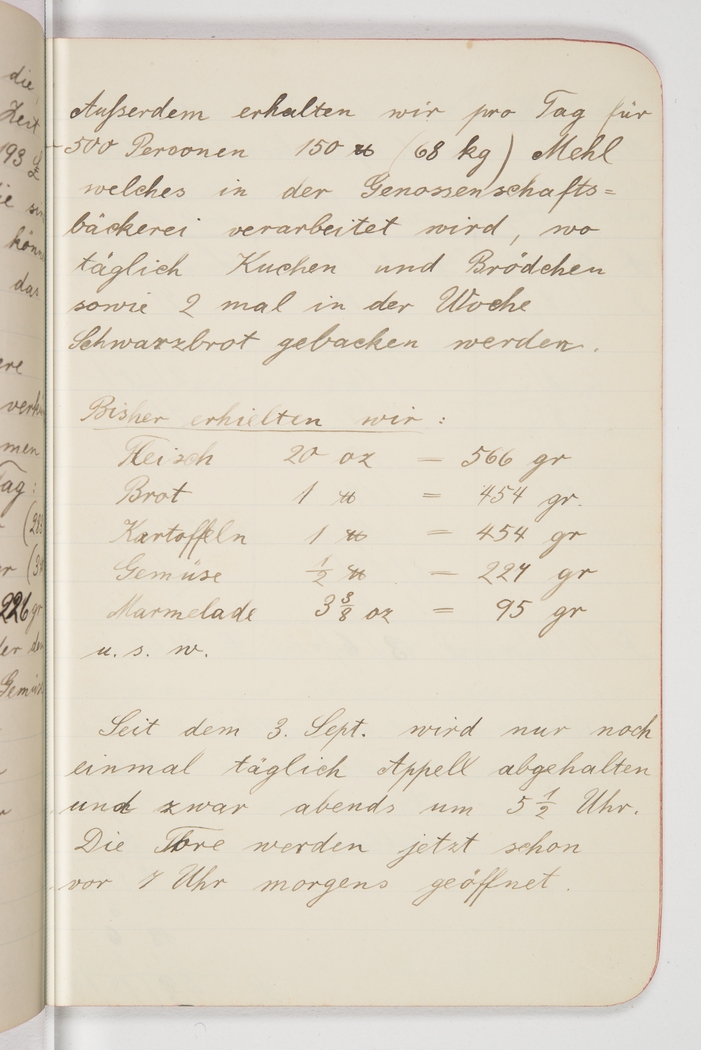 die,
Zeit
193
könn
das
ere
men
Tag:
226 gr
Gemüs
Außerdem erhalten wir pro Tag für
500 Personen 150 ℔ (68 kg) Mehl
welches in der Genossenschafts=
bäckerei verarbeitet wird, wo
täglich Kuchen und Brödchen
sowie 2 mal in der Woche
Schwarzbrot gebacken werden.
Bisher erhielten wir:
Fleisch 20 oz = 566 gr
Brot 1 ℔ = 454 gr.
Kartoffeln 1 ℔ = 454 gr
Gemüse ½ ℔ = 227 gr
Marmelade 3⅜ oz = 95 gr
u. s. w.
Seit dem 3. Sept. wird nur noch
einmal täglich Appell abgehalten
und zwar abends um 5½ Uhr.
Die Tore werden jetzt schon
vor 7 Uhr morgens geöffnet.